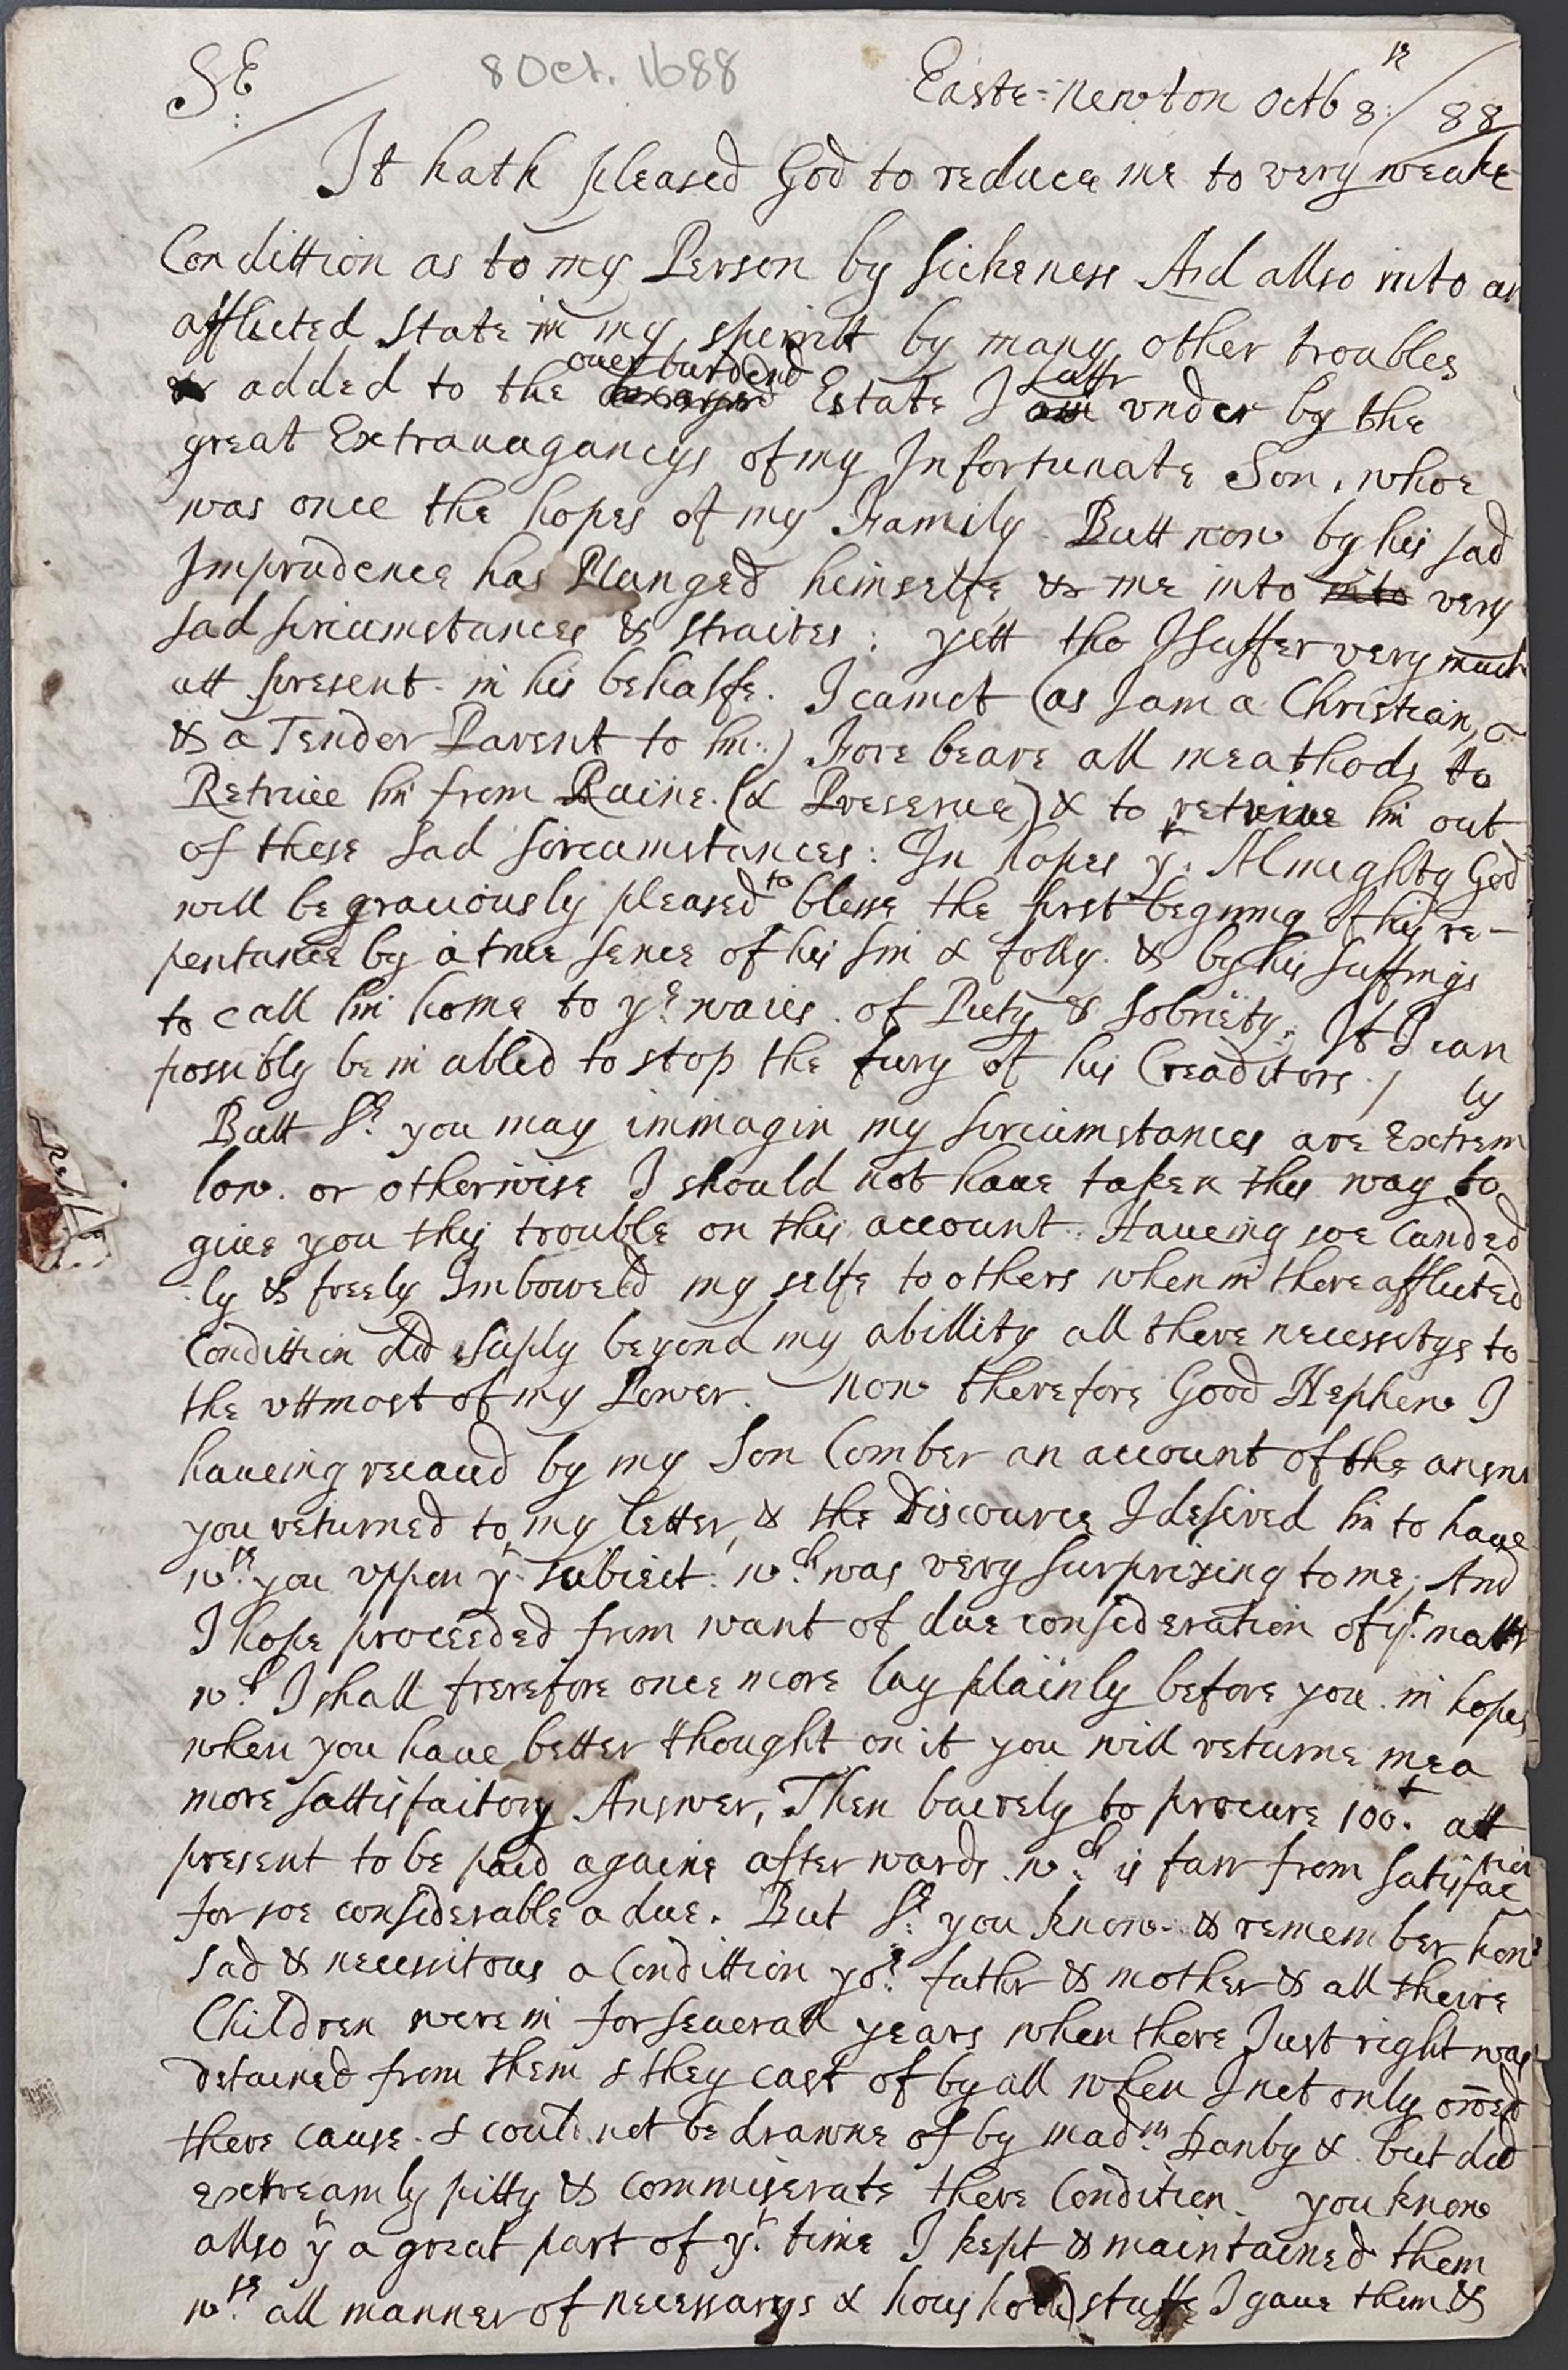 8 Oct. 1688
Sr: Easte-Newton Octb 8th: / 88
It hath pleased God to reduce me to very weake
Condittion as to my Person by sickeness And allso into an
afflicted state in my speiritt by many other troubles
added to the overburdend Estate I suffr vnder by the
great Extrauagancys of my Infortunate Son, whoe
was once the hopes of my Family Butt now by his sad
Imprudence has Plunged heimselfe & me into into very
sad sircumstances & straites: yett tho I suffer very much
att present in his behalfe. I cannot (as I am a Christian,
& a Tender Parent to him:) Fore beare all meathods to
Retriue him from Ruine. (& Preserue) & to retriue him out
of these sad sircumstances: In hopes yt Almughty God
will be graciously pleased to blesse the first begining of his re-
pentance by a true sence of his sin & folly. & by his suffrings
to call him home to ye waies of Piety & Sobriety. If I can
possibly be in abled to stop the fury of his Creaditors. /
Butt Sr you may immagin my sircumstances are Extremly
low. or otherwise I should not haue taken this way to
giue you this trouble on this account. Haueing soe Canded
ly & freely Imboweld my selfe to others when in there afflicted
Condittion did suply beyond my abillity all there necessitys to
the vttmost of my Power. now therefore Good Nephew I
haueing receaud by my Son Comber an account of the answr
you returned to my letter, & the Discource I desired him to haue
wth you vppon yt subiect: wch was very surprizing to me; And
I hope proceeded from want of due consideration of yt mattr
wch I shall therefore once more lay plainly before you in hopes
when you haue better thought on it you will returne me a
more sattisfactory Answer, Then barely to procure 100l att
present to be paid againe after wards wch is farr from satisfaction
for soe considerable a due. But Sr you know & remember how
sad & necessitous a Condittion yor father & mother & all theire
Children were in for seuerall years when there Just right was
detained from them & they cast of by all when I not only owned
there cause & could not be drawne of by madm Danby & but did
extreamly pitty & commiserate there Condition. you know
allso yt a great part of yt time I kept & maintained them
wth all manner of necessarys & houshold stuffe I gaue them &